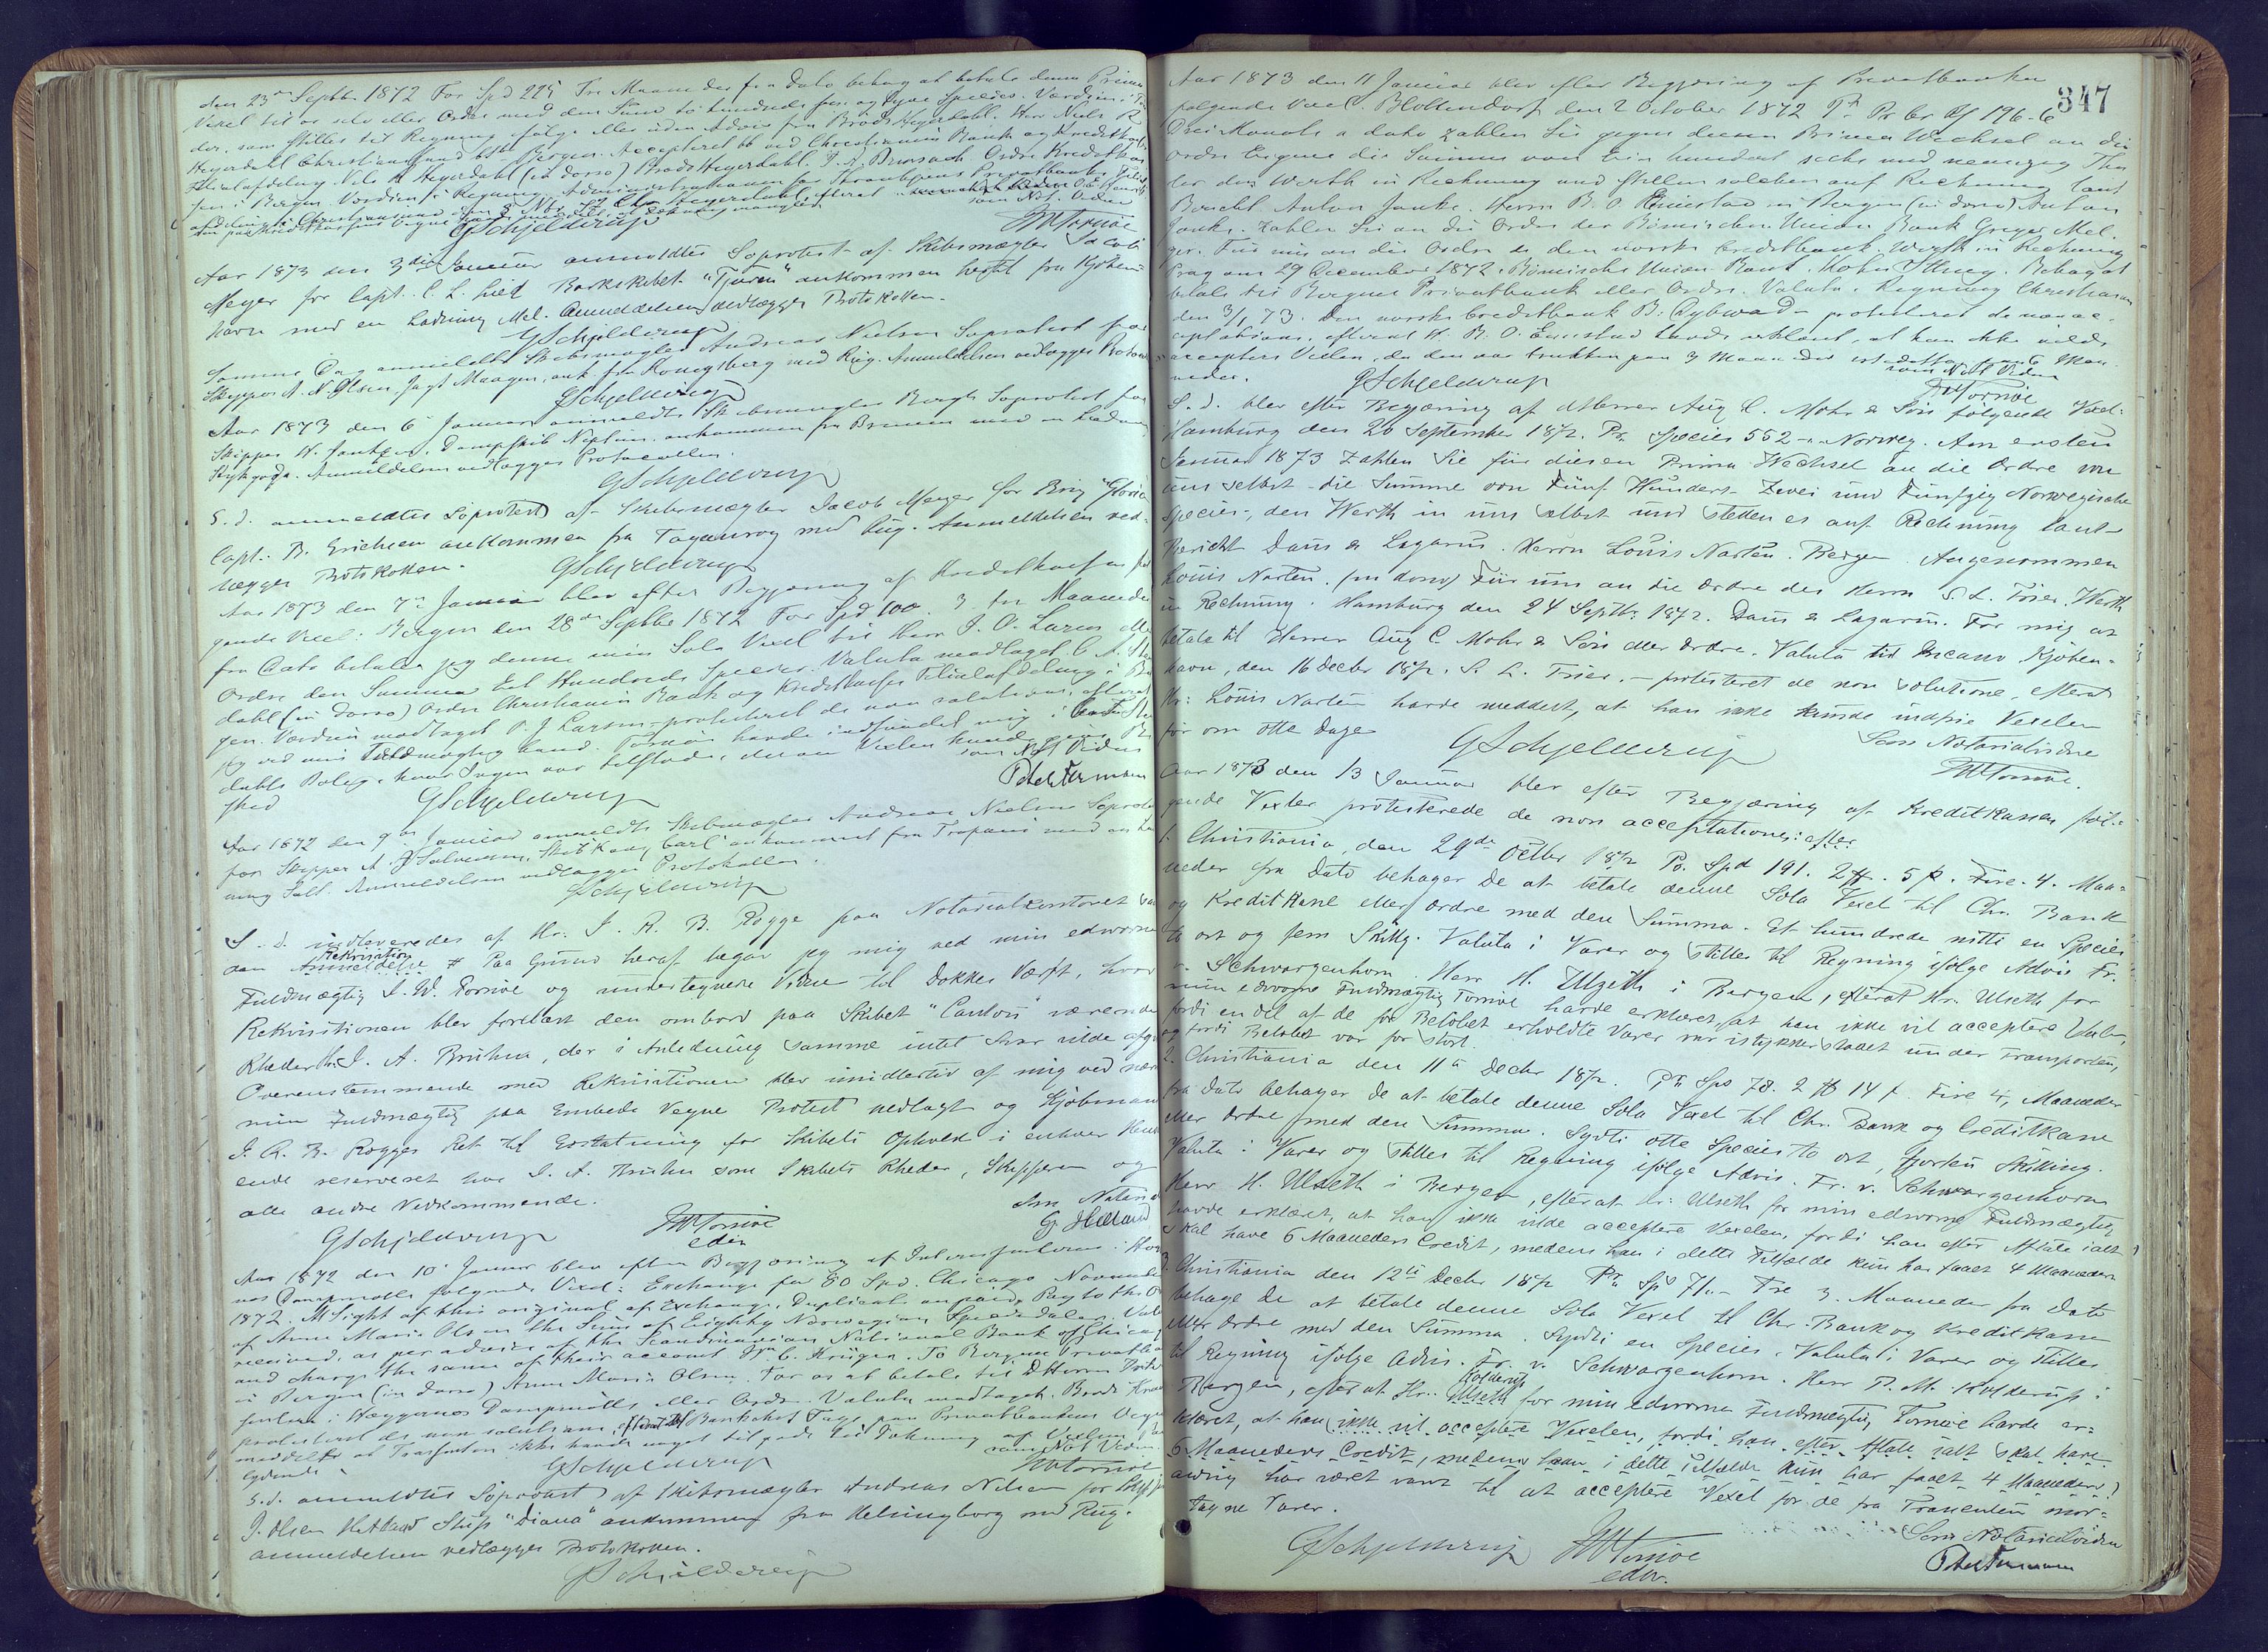 den 23de Septbr 1872 For Spd 225 Tre Maaneder fra Dato behag at betale denne Prima
Vexel til os selv eller Ordre med den Sum to hundrede fem og tyve Species. Værdien
der, som stilles til Regning ifølge eller uden Advis fra Brødr Heyerdahl. Herr Niels R
Heyerdahl Christianssund bth Bergen. Accepteret bb ved Christiania Bank og Kreditkasses
Filialafdeling Nils R Heyerdahl (in dorso) Brødr Heyerdahl. Ordre Kreditkas
sen i Bergen. Værdien i Regning. Administrationen for Throndhjems Privatbanks Filial
afdeling i Christianssund
GSchjelderup
som Not. Vidne
JWTornøe
Aar 1873 den 3die Januar anmeldtes Søprotest af Skibsmægler Jacob
Meyer for Capt. C. L. Lied Barkskibet "Tjuren" ankommen hertil fra Kjøben
havn med en Ladning Mel. Anmeldelsen vedlægges Protokollen.
GSchjelderup
Samme Dag anmeldte Skibsmægler Andreas Nielsen Søprotest for
Skipper A. N. Olsen, Jagt Maagen, ank. fra Kønigsberg med Rug. Anmeldelsen vedlægges Protoc
GSchjelderup
Aar 1873 den 6 Januar anmeldte Skibsmægler Bergh Søprotest for
Skipper H. Jantzen, Dampskib Neptun ankommen fra Bremen med en Ladning
Stykgods. Anmeldelsen vedlægges Protocollen.
GSchjelderup
S. d. anmeldtes Søprotest af Skibsmægler Jacob Meyer for Brig "Gloria"
Capt. B. Erichsen ankommen fra Taganrog med Rug. Anmeldelsen ved-
lægges Protokollen.
GSchjelderup
Aar 1873 den 7de Januar blev efter Begjæring af Kreditkassen føl
gende Vexel: Bergen den 28de Septbr 1872 For Spd 100. 3 tre Maaneder
fra Dato betaler jeg denne min Sola Vexel til Herr J. O. Larsen eller
Ordre den Summa Et Hundrede Species Valuta modtaget
dahl (in dorso) Ordre Christiania Bank og Kreditkasses Filialafdeling i Ber
gen. Værdien modtaget O. J. Larsen - protesteret de non solutione, efterat
jeg ved min Fuldmægtig cand. Tornøe havde indfundet mig i
dahls Bolig, hvor Ingen var tilstede, der om Vexlen kunde give Be
sked
GSchjelderup
som Not Vidne
Peter Fermann
Aar 1872 den 9de Januar anmeldte Skibsmægler Andreas Nielsen Søprotest
for Skipper A. J. Salvesen, Skib "Kong Carl" ankommet fra Trapani med en Lad
ning Salt. Anmeldelsen vedlægges Protokollen.
GSchjelderup
S. d. indleveredes af Hr. J. R. B. Rogge paa Notarialkontoret
den Rekvisition # Paa Grund heraf begav jeg mig ved min edsvorne
Fuldmægtig J. W. Tornøe og undertegnede Vidne til Dokkes Værft, hvor
Rekvisitionen blev forelæst den ombord paa Skibet "Canton" værende
Rheder Hr. J. A. Bruhn, der i Anledning samme intet Svar vilde afgive
Overenstemmende med Rekvisitionen blev imidlertid af mig ved nævn
min Fuldmægtig paa Embeds Vegne Protest nedlagt og Kjøbmand
J. R. B. Rogges Ret til Erstatning for Skibets Ophold i enhver Hen
ende reserveret hos J. A. Bruhn som Skibets Rheder, Skipperen og
alle andre Vedkommende.
Som Notarial
GSchjelderup
JWTornøe
edsv
G. Helland
Aar 1872 den 10' Januar blev efter Begjæring af Interessenterne i
nos Dampmølle følgende Vexel: Exchange for 80 Spd. Chicago November
1872. At Sight of this original of Exchange, Duplicate unpaid, Pay to the Or
of Anne Marie Olsen the Sum of Eighty Norwegian Speciedaler Value
received, as per advice of the Scandinavian National Bank of Chicago
and charge the same of their account Wm C. Krüger. To Bergens Privatbank
in Bergen (in dorso) Anne Marie Olsen. For os at betale til DHerren Interes
senterne i Hæggernæs Dampmølle eller Ordre. Valuta modtaget. Brødr
protesteret de non solutione, efterat Bankchef Fage paa Privatbankens Vegne
meddelte at Trassenten ikke havde noget tilgode til Dækning af Vexlen
lydende
som Not Vidne
GSchjelderup
JWTornøe
S. d. anmeldtes Søprotest af Skibsmægler Andreas Nielsen for Skipper
J. Olsen Hetland Skip "Diana" ankommen fra Helsingborg med Rug.
Anmeldelsen vedlægges Protokollen.
GSchjelderup
347
Aar 1873 den 11 Januar blev efter Begjæring af Privatbanken
følgende Vexel. Blottendorf den 2 October 1872 Pr Cr 196-6
Drei Monate a dato zahlen Sie gegen diesen Prima Wechsel an die
Ordre Eigene die Summe von Ein hundert sechs und neunzig Tha
ler den Werth in Rechnung und stellen solchen auf Rechnung laut
Bericht. Anton Janke. Herrn B. O. Enerstad in Bergen (in dorso) Anton
Janke. Zahlen Sie an die Ordre der Bömischen Union Bank Gregor Mel.
ger. Für uns an die Ordre der den norske Creditbank. Werth in Rechnung
Prag am 29 December 1872. Bömische Union Bank. Behag at
betale til Bergens Privatbank eller Ordre. Valuta i Regning Christiania
den 3/1 73. Den norske Creditbank B. Dybwad - protesteret de non ac-
ceptatione, efterat H. B. O. Enerstad havde erklæret, at han ikke vilde
acceptere Vexlen, da den var trukken paa 3 Maaneder istedetfor paa 6 Maa-
neder.
GSchjelderup
som Not Vidne
JWTornøe
S. d. blev efter Begjæring af Herrer Aug C. Mohr & Søn følgende Vexel:
Hamburg den 20 September 1872. Pr Species 552 - Norweg. Am ersten
Januar 1873 zahlen Sie für diesen Prima Wechsel an die Ordre von
uns selbst die Summe von Fünf Hundert Zwei und Fünfzig Norwegische
Species, den Werth in uns selbst und stellen es auf Rechnung laut
Bericht Daus & Lazarus. Herrn Louis Narten. Bergen. Angenommen
Louis Narten. (in dorso) Für uns an die Ordre des Herrn S. L. Trier. Werth
in Rechnung. Hamburg den 24 Septbr: 1872. Daus & Lazarus. For mig at
betale til Herrer Aug C. Mohr & Søn eller Ordre. Valuta til Incasso, Kjøben-
havn, den 16 Decbr 1872. S. L. Trier. - protesteret de non solutione, efterat
Hr: Louis Narten havde meddelt, at han ikke kunde indfrie Vexelen
før om otte Dage
GSchjelderup
Som Notarialvidne
JWTornøe.
Aar 1873 den 13 Januar blev efter Begjæring af Kreditkassen føl-
gende Vexler protesterede de non acceptatione: efter
1. Christiania, den 29de Octbr 1872 Po. Spd 191. 2 # . 5 ß. Fire. 4. Maa-
neder fra Dato behager De at betale denne Sola Vexel til Chr. Bank
og Kreditkasse eller Ordre med den Summa. Et hundrede nitti en Species
to ort og fem Skillg. Valuta i Varer og stilles til Regning ifølge Advis Fr.
v. Schwarzenhorn. Herr H. Ulseth i Bergen, efterat Hr. Ulseth for
min edsvorne Fuldmægtig Tornøe havde erklæret, at han ikke vil acceptere Vexlen,
fordi en del af de for Beløbet erholdte Varer var istykkerslaaet under Transporten,
og fordi Beløbet var for stort.
2. Christiania den 11te Decbr 1872. Pr Spd 78. 2 # 14 ß Fire 4, Maaneder
fra Dato behager De at betale denne Sola Vexel til Chr. Bank og Creditkasse
eller Ordre med den Summa. Sytti otte Species to ort, fjorten Skilling.
Valuta i Varer og stilles til Regning ifølge Advis. Fr. v. Schwarzenhorn
Herr H. Ulseth i Bergen, efterat Hr: Ulseth for min edsvorne Fuldmægtig
havde erklæret, at han ikke vilde acceptere Vexelen, fordi han efter Aftale ialt
skal have 6 Maaneders Credit, medens han i dette Tilfælde kun har faaet 4 Maaneder
3. Christiania den 12te Decbr 1872 Pr Spd 71 - Tre 3. Maaneder fra Dato
behage De at betale denne Sola Vexel til Chr. Bank og Kreditkasse
eller Ordre med den Summa. Sytti en Species. Valuta i Varer og stilles
til Regning ifølge Advis. Fr. v. Schwarzenhorn. Herr P. M. Kolderup i
Bergen, efterat Hr. Kolderup for min edsvorne Fuldmægtig Tornøe havde er-
klæret, at han ikke vil acceptere Vexelen, fordi han efter Aftale ialt skal have
6 Maaneders Credit, medens han i dette Tilfælde kun har faaet 4 Maaneder
aldrig har været vant til at acceptere Vexel for de fra Trassenten mod-
tagne Varer.
Som Notarialvidne
GSchjelderup
JWTornøe
edsv.
Peter Fermann